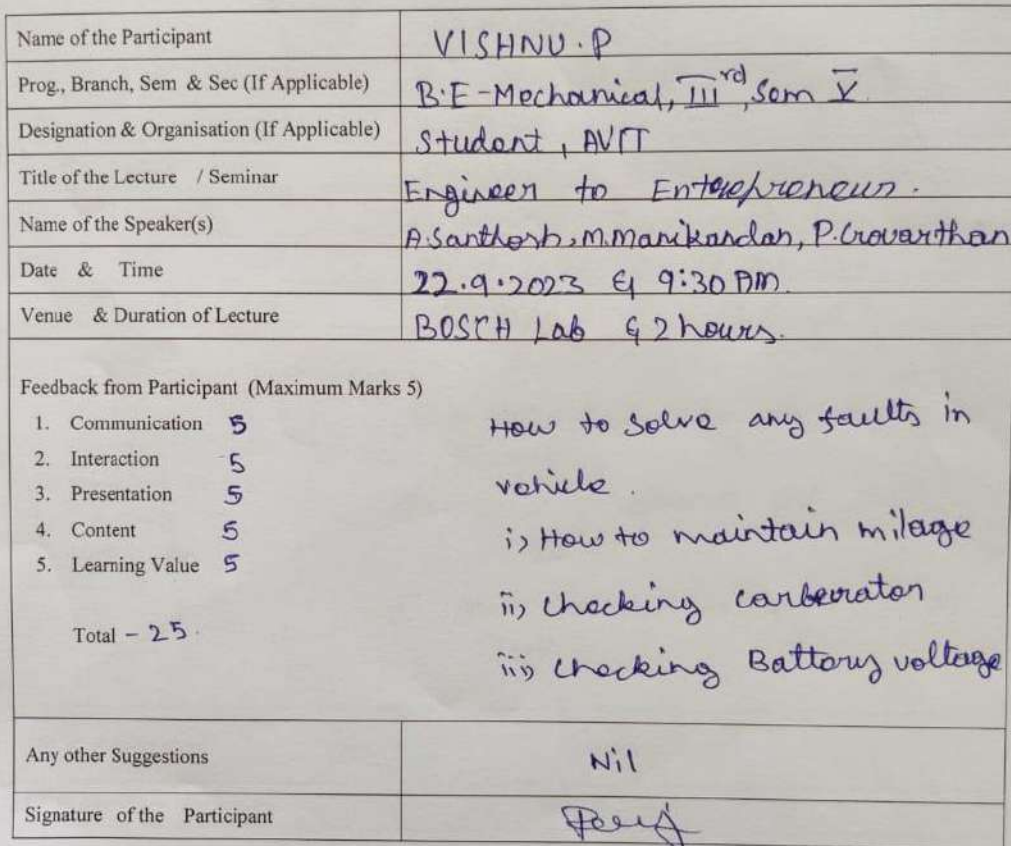 Name of the Participant VISHNU.P
Prog., Branch, Sem & Sec (If Applicable) B.E-Mechanical, III rd, Sem V
Designation & Organisation (If Applicable) Student, AVIT
Title of the Lecture / Seminar Engineer to Enterepreneur.
Name of the Speaker(s) A.Santhosh, M.Manikandan, P.Govarthan
Date & Time 22.9.2023 & 9:30 AM.
Venue & Duration of Lecture BOSCH Lab & 2 hours.
Feedback from Participant (Maximum Marks 5)
1. Communication 5
2. Interaction 5
3. Presentation 5
4. Content 5
5. Learning Value 5
Total - 25.
How to solve any faults in
vehicle.
i) How to maintain milage
ii) checking carberator
iii) checking Battery voltage
Any other Suggestions Nil
Signature of the Participant